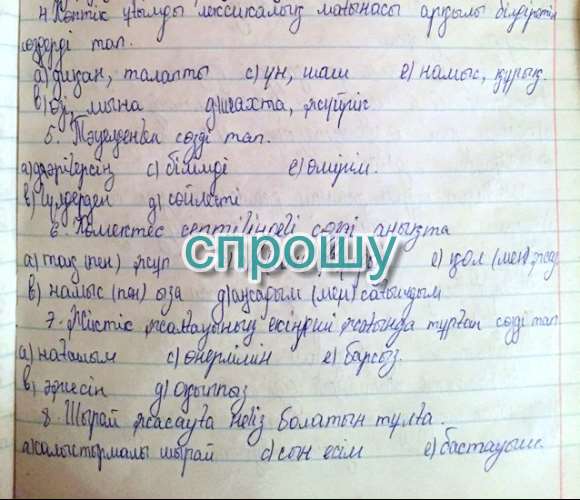 4. Көптік ұғымды лексикалық мағынасы арқылы білдіретін
сөздерді тап.
а) диқан, талапты с) ұн, шаш е) намыс, құрық.
в) өзі, мына д) шахта, жүгіріс
5. Тәуелденген сөзді тап.
а) дәрігерсің с) білімді е) өмірім.
в) гүлдерден д) сөйлесті
6. Көмектес септігіндегі сөзді анықта
спрошу
а) таң (пен) жұп е) қол (мен) жаз
в) намыс (пен) ыза д) аңсадым (мен) сағындым
7. Жіктік жалғауының екінші жағында тұрған сөзді тап
а) нағашым с) өнерлімін е) барсыз
в) әжесін д) оқыппыз
8. Шырай жасауға негіз болатын тұлға.
а) салыстырмалы шырай с) сын есім е) бастауыш.